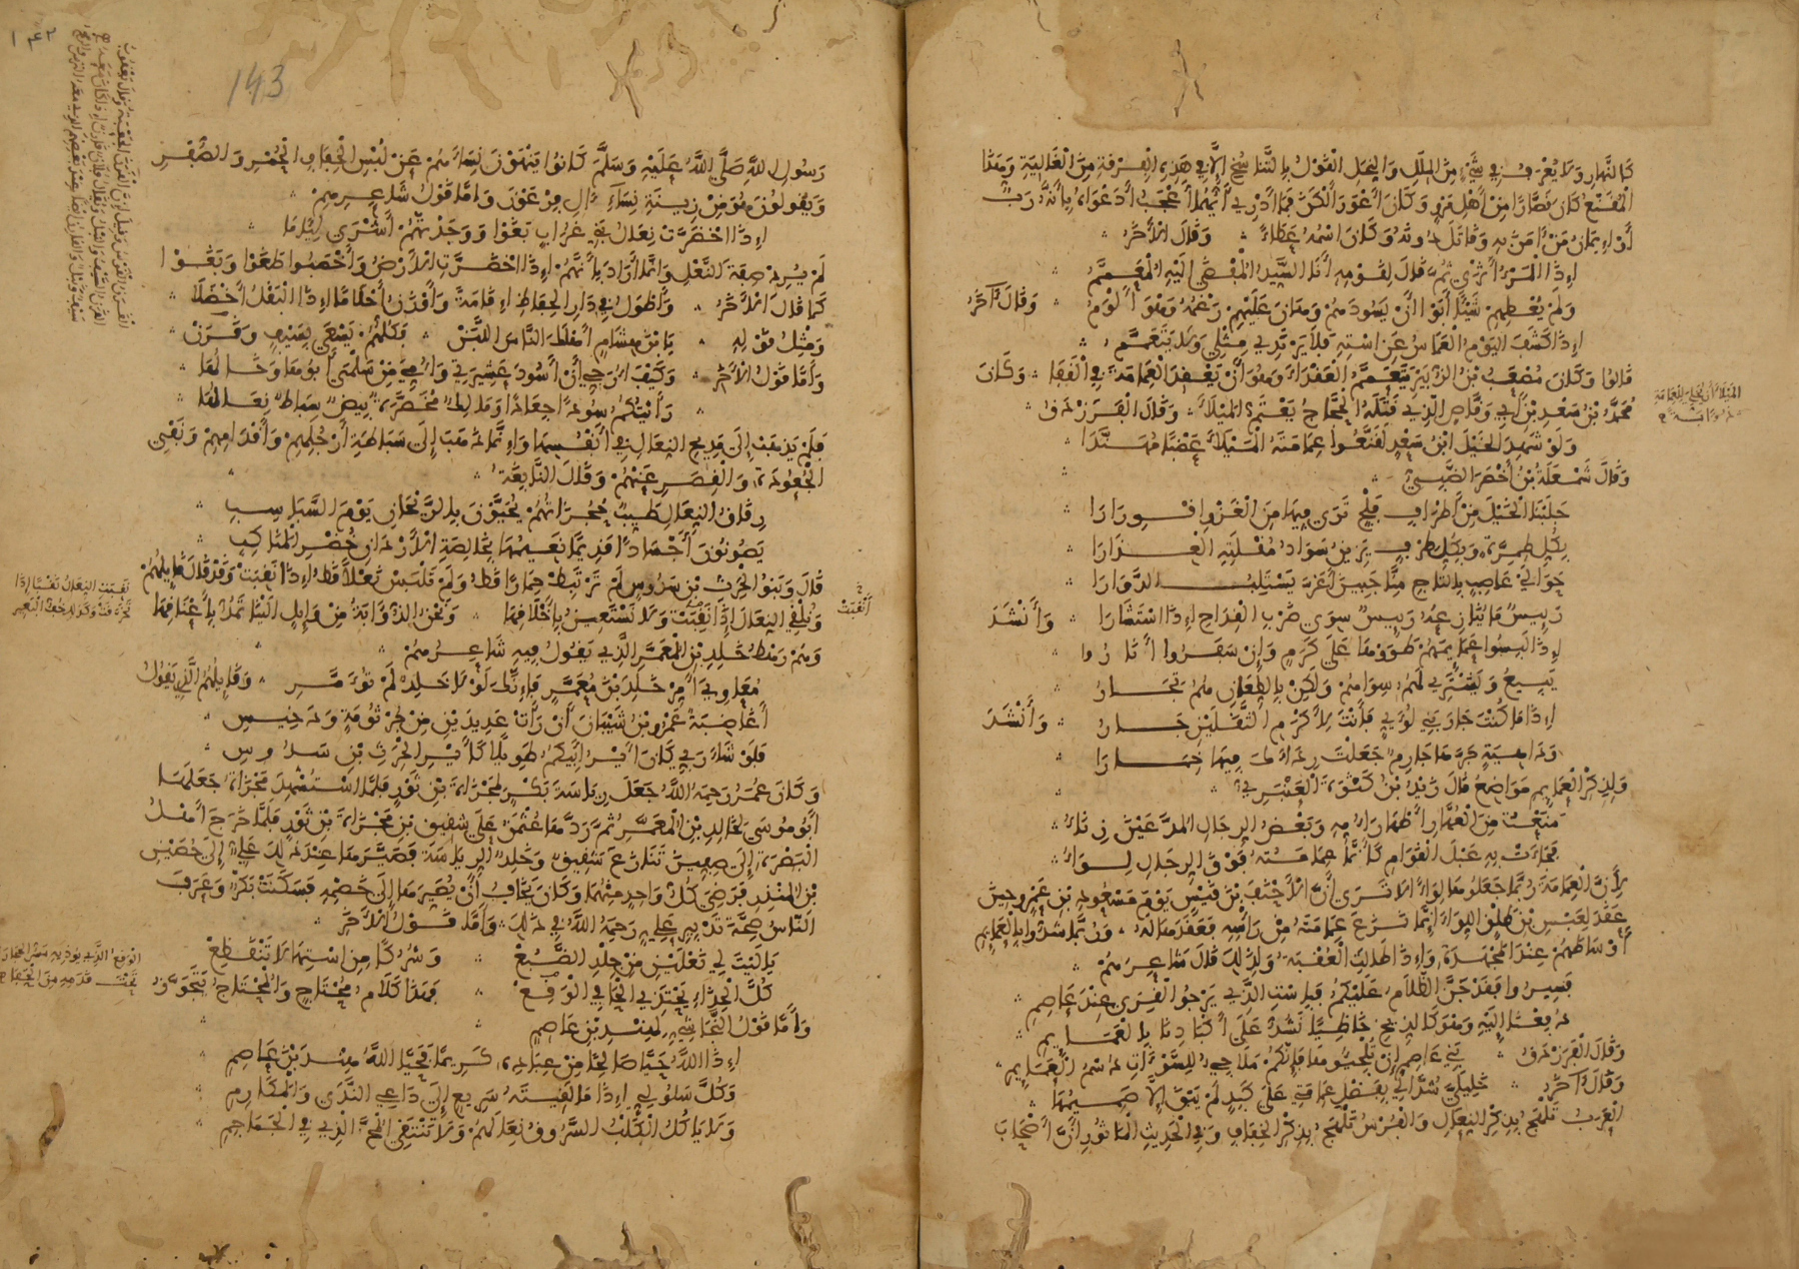 كَالنَّهارِ وَلَا يُعْرَفُ فِي شَيْءٍ مِنَ الْمِلَلِ وَالنِّحَلِ الْقَوْلُ بِالتَّنَاسُخِ إِلَّا فِي هَذِهِ الْفِرْقَةِ مِنَ الْغَالِيَةِ وَهَذَا
الْمُقَنَّعُ كَانَ قَصَّارًا مِنْ أَهْلِ مَرْوَ وَكَانَ أَعْوَرَ أَلْكَنَ فَمَا أَدْرِي أَيُّهُمَا أَعْجَبُ أَدَعْوَاهُ بِأَنَّهُ رَبٌّ
أَوْ إِيمَانُ مَنْ آمَنَ بِهِ وَقَاتَلَ دُونَهُ وَكَانَ اسْمُهُ عَطَاءً وَقَالَ الْآخَرُ
إِذَا الْمَرْءُ أَثْرَى ثُمَّ قَالَ لِقَوْمِهِ أَنَا السَّيِّدُ الْمُفْضَى إِلَيْهِ الْمُعَمَّمُ
وَلَمْ يُعْطِهِمْ شَيْئًا أَبَوْا أَنْ يَسُودَهُمْ وَهَانَ عَلَيْهِمْ رَغْمُهُ وَهُوَ أَلْوَمُ وَقَالَ آخَرُ
إِذَا كَشَفَ الْيَوْمُ الْعَمَاسُ عَنِ اسْتِهِ فَلَا يَرْتَدِي مِثْلِي وَلَا يَتَعَمَّمُ
قَالُوا وَكَانَ مُصْعَبُ بْنُ الزُّبَيْرِ يَتَعَمَّمُ الْعَقْدَاءَ وَهُوَ أَنْ يَعْقِدَ الْعِمَامَةَ فِي الْقَفَا وَكَانَ
مُحَمَّدُ بْنُ سَعْدِ بْنِ أَبِي وَقَّاصٍ الَّذِي قَتَلَهُ الْحَجَّاجُ يَعْتَمُّ الْمَيْلَاءَ وَقَالَ الْفَرَزْدَقُ
وَلَوْ شَهِدَ الْخَيْلَ ابْنُ سَعْدٍ لَقَنَّعُوا عِمَامَتَهُ الْمَيْلَاءَ عَضْبًا مُهَنَّدَا
وَقَالَ شَمْعَلَةُ بْنُ أَخْضَرَ الضَّبِّيُّ
جَلَبْنَا الْخَيْلَ مِنْ أَطْرَافِ فَلْجٍ تَرَى فِيهَا مِنَ الْغَزْوِ اقْوِرَارَا
بِكُلِّ طِمِرَّةٍ وَبِكُلِّ طِرْفٍ يَزِينُ سَوَادَ مُقْلَتِهِ الْعِذَارَا
حَوَالَيْ عَاصِبٍ بِالتَّاجِ مِنَّا جَبِينَ أَغَرَّ يَسْتَلِبُ الدَّوَارَا
رَئِيسٌ مَا يُنَازِعُهُ رَئِيسٌ سِوَى ضَرْبِ الْقِدَاحِ إِذَا اسْتَشَارَا وَأَنْشَدَ
إِذَا لَبِسُوا عَمَائِمَهُمْ طَوَوْهَا عَلَى كَرَمٍ وَإِنْ سَفَرُوا أَنَارُوا
يَبِيعُ وَيَشْتَرِي لَهُمُ سِوَاهُمْ وَلَكِنْ بِالطِّعَانِ هُمُ تِجَارُ
إِذَا مَا كُنْتَ جَارَ بَنِي لُؤَيٍّ فَأَنْتَ لِأَكْرَمِ الثَّقَلَيْنِ جَارُ وَأَنْشَدَ
وَدَاهِيَةٍ جَرَّهَا جَارِمٌ جَعَلْتَ رِدَاءَكَ فِيهَا خِمَارَا
وَلِذِكْرِ الْعَمَائِمِ مَوَاضِعُ قَالَ زَيْدُ بْنُ كَثْوَةَ الْعَنْبَرِيُّ
مَنَعْتُ مِنَ الْعُهَّارِ أَطْهَارَ أُمِّهِ وَبَعْضُ الرِّجَالِ الْمُدَّعَيْنَ زِنَاءُ
فَجَاءَتْ بِهِ عَبْلَ الْقَوَامِ كَأَنَّمَا عِمَامَتُهُ فَوْقَ الرِّجَالِ لِوَاءُ
لِأَنَّ الْعِمَامَةَ رُبَّمَا جَعَلُوهَا لِوَاءً أَلَا تَرَى أَنَّ الْأَحْنَفَ بْنَ قَيْسٍ يَوْمَ مَسْعُودِ بْنِ عَمْرٍو حِينَ
عَقَدَ لِعَبْسِ بْنِ طَلْقٍ اللِّوَاءَ إِنَّمَا نَزَعَ عِمَامَتَهُ مِنْ رَأْسِهِ فَعَقَدَهَا لَهُ وَرُبَّمَا شَدُّوا بِالْعَمَائِمِ
أَوْسَاطَهُمْ عِنْدَ الْمَجْهَدَةِ وَإِذَا طَالَتِ الْعُقْبَةُ وَلِذَلِكَ قَالَ شَاعِرُهُمْ
فَسِيرُوا فَقَدْ جَنَّ الظَّلَامُ عَلَيْكُمُ فَبِاسْتِ الَّذِي يَرْجُو الْقِرَى عِنْدَ عَاصِمِ
دُفِعْنَا إِلَيْهِ وَهُوَ كَالذِّيخِ خَاظِيًا نَشُدُّ عَلَى أَكْبَادِنَا بِالْعَمَائِمِ
وَقَالَ الْفَرَزْدَقُ بَنِي عَاصِمٍ إِنْ تُلْجِئُوهَا فَإِنَّكُمْ مَلَاجِئُ لِلسَّوْءَاتِ دُسْمُ الْعَمَائِمِ
وَقَالَ آخَرُ خَلِيلَيَّ شُدَّا لِي بِفَضْلِ عِمَامَتِي عَلَى كَبِدٍ لَمْ يَبْقَ إِلَّا صَمِيمُهَا
الْعَرَبُ تَلْهَجُ بِذِكْرِ النِّعَالِ وَالْفُرْسُ تَلْهَجُ بِذِكْرِ الْخِفَافِ وَفِي الْحَدِيثِ الْمَأْثُورِ أَنَّ أَصْحَابَ
١٤٢
143
رَسُولِ اللَّهِ صَلَّى اللَّهُ عَلَيْهِ وَسَلَّمَ كَانُوا يَنْهَوْنَ نِسَاءَهُمْ عَنْ لُبْسِ الْخِفَافِ الْحُمْرِ وَالصُّفْرِ
وَيَقُولُونَ هُوَ مِنْ زِينَةِ نِسَاءِ آلِ فِرْعَوْنَ وَأَمَّا قَوْلُ شَاعِرِهِمْ
إِذَا اخْضَرَّتْ نِعَالُ بَنِي غُرَابٍ بَغَوْا وَوَجَدْتَهُمْ أَشْرَى لِئَامَا
لَمْ يُرِدْ صِفَةَ النَّعْلِ وَإِنَّمَا أَرَادَ بِأَنَّهُمْ إِذَا اخْضَرَّتِ الْأَرْضُ وَأَخْصَبُوا طَغَوْا وَبَغَوْا
كَمَا قَالَ الْآخَرُ وَأَطْوَلُ فِي دَارِ الْحِفَاظِ إِقَامَةً وَأَوْزَنُ أَحْلَامًا إِذَا الْبَقْلُ أَخْضَلَا
وَمِثْلُ قَوْلِهِ يَا بْنَ هِشَامٍ أَهْلَكَ النَّاسَ اللَّبَنْ فَكُلُّهُمْ يَسْعَى بِسَيْفٍ وَقَرَنْ
وَأَمَّا قَوْلُ الْآخَرِ وَكَيْفَ أُرَجِّي أَنْ أَسُودَ عَشِيرَتِي وَأُمِّيَ مِنْ سَلْمَى أَبُوهَا وَخَالُهَا
رَأَيْتُكُمُ سُودًا جِعَادًا وَمَالِكٌ مُخَصَّرَةٌ بِيضٌ سِبَاطٌ نِعَالُهَا
فَلَمْ يَذْهَبْ إِلَى مَدِيحِ النِّعَالِ فِي أَنْفُسِهَا وَإِنَّمَا ذَهَبَ إِلَى سَبَاطَةِ أَرْجُلِهِمْ وَأَقْدَامِهِمْ وَنَفْيِ
الْجُعُودَةِ وَالْقِصَرِ عَنْهُمْ وَقَالَ النَّابِغَةُ
رِقَاقُ النِّعَالِ طَيِّبٌ حُجُزَاتُهُمْ يُحَيَّوْنَ بِالرَّيْحَانِ يَوْمَ السَّبَاسِبِ
يَصُونُونَ أَجْسَادًا قَدِيمًا نَعِيمُهَا بِخَالِصَةِ الْأَرْدَانِ خُضْرِ الْمَنَاكِبِ
قَالَ وَبَنُو الْحَرِثِ بْنِ سَدُوسٍ لَمْ تَرْتَبِطْ حِمَارًا قَطُّ وَلَمْ تَلْبَسْ نَعْلًا قَطُّ إِذَا نَقِبَتْ وَقَدْ قَالَ قَائِلُهُمْ
وَنُلْقِي النِّعَالَ إِذَا نَقِبَتْ وَلَا نَسْتَعِينُ بِأَخْلَاقِهَا وَنَحْنُ الذُّؤَابَةُ مِنْ وَائِلٍ إِلَيْنَا تَمُدُّ بِأَعْنَاقِهَا
وَهُمْ رَهْطُ خَالِدِ بْنِ الْمُعَمَّرِ الَّذِي يَقُولُ فِيهِ شَاعِرُهُمْ
مُعَاوِيَ أَمِّرْ خَالِدَ بْنَ مُعَمَّرٍ فَإِنَّكَ لَوْلَا خَالِدٌ لَمْ تُؤَمَّرِ وَقَائِلُهُمُ الَّذِي يَقُولُ
أَغَاضِبَةٌ عَمْرُو بْنُ شَيْبَانَ أَنْ رَأَتْ عَدِيدَيْنِ مِنْ جُرْثُومَةٍ وَدَخِيسِ
فَلَوْ شَاءَ رَبِّي كَانَ أَيْرُ أَبِيكُمُ طَوِيلًا كَأَيْرِ الْحَرِثِ بْنِ سَدُوسِ
وَكَانَ عُمَرُ رَحِمَهُ اللَّهُ جَعَلَ رِيَاسَةَ بَكْرٍ لِمَجْزَأَةَ بْنِ ثَوْرٍ فَلَمَّا اسْتُشْهِدَ مَجْزَأَةُ جَعَلَهَا
أَبُو مُوسَى لِخَالِدِ بْنِ الْمُعَمَّرِ ثُمَّ رَدَّهَا عُثْمَنُ عَلَى شَقِيقِ بْنِ مَجْزَأَةَ بْنِ ثَوْرٍ فَلَمَّا خَرَجَ أَهْلُ
الْبَصْرَةِ إِلَى صِفِّينَ تَنَازَعَ شَقِيقٌ وَخَالِدٌ الرِّيَاسَةَ فَصَيَّرَهَا عِنْدَ ذَلِكَ عَلِيٌّ إِلَى حُضَيْنِ
بْنِ الْمُنْذِرِ فَرَضِيَ كُلُّ وَاحِدٍ مِنْهُمَا وَكَانَ يَخَافُ أَنْ يُصَيِّرَهَا إِلَى خَصْمِهِ فَسَكَنَتْ بَكْرٌ وَعَرَفَ
النَّاسُ صِحَّةَ تَدْبِيرِ عَلِيٍّ رَحِمَهُ اللَّهُ فِي ذَلِكَ وَأَمَّا قَوْلُ الْآخَرِ
يَا لَيْتَ لِي نَعْلَيْنِ مِنْ جِلْدِ الضَّبُعْ وَشُرُكًا مِنَ اسْتِهَا لَا تَنْقَطِعْ
كُلَّ الْحِذَاءِ يَحْتَذِي الْحَافِي الْوَقِعْ فَهَذَا كَلَامُ مُحْتَاجٍ وَالْمُحْتَاجُ يَتَجَوَّزُ
وَأَمَّا قَوْلُ النَّجَاشِيِّ لِهِنْدِ بْنِ عَاصِمٍ
إِذَا اللَّهُ حَيَّا صَالِحًا مِنْ عِبَادِهِ كَرِيمًا فَحَيَّا اللَّهُ هِنْدَ بْنَ عَاصِمِ
وَكُلُّ سَلُولِيٍّ إِذَا مَا لَقِيتَهُ سَرِيعٌ إِلَى دَاعِي النَّدَى وَالْمَكَارِمِ
وَلَا يَأْكُلُ الْكَلْبُ السَّرُوقُ نِعَالَهُمْ وَلَا تَنْتَقِي الْمُخَّ الَّذِي فِي الْجَمَاجِمِ